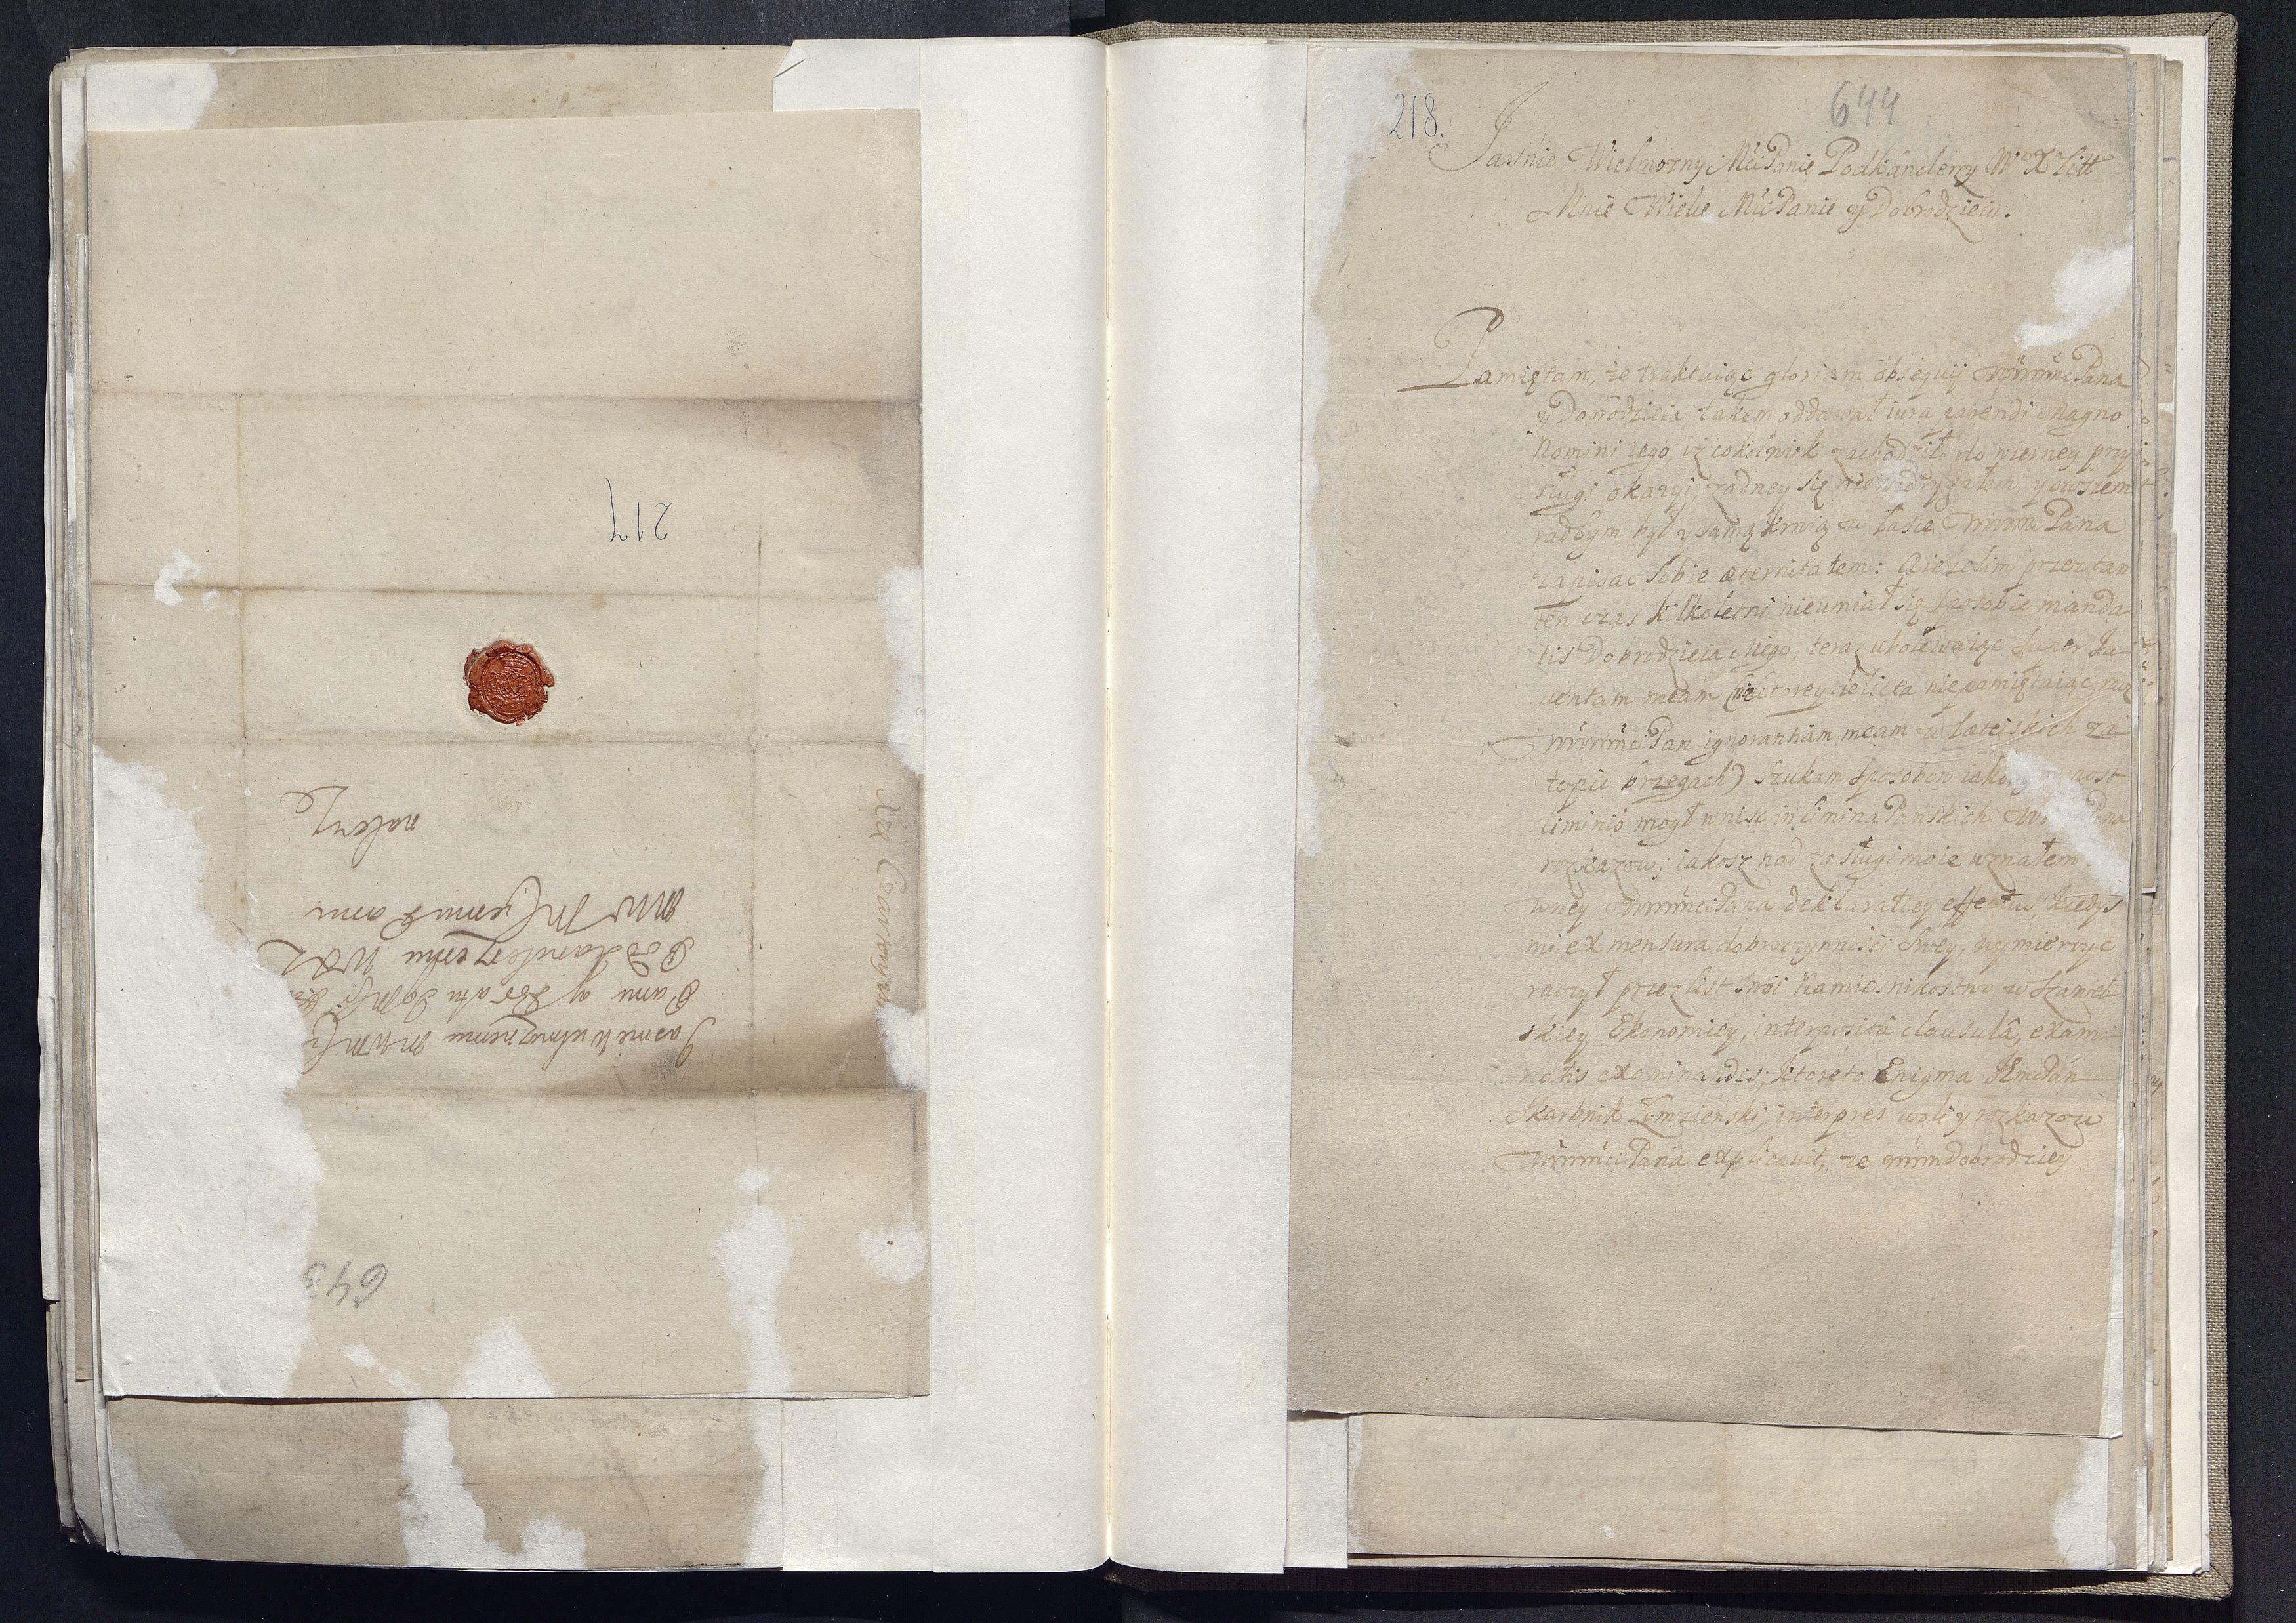 217
Jasnie Wielmoznemu MWMX
Panu y Bratu
Podkanclerzemu WXL
MW Mscemu Panu
nalezy
643
Xże Czartoryski
218.
644
Jasnie Wielmozny Mći Panie Podkanclerzy W X Litt
Mnie Wielce Mći Panie y Dobrodzieiu.
Pamiętam, ze traktuiąc gloriam obsequij WMMMći Pana
y Dobrodzieia, takem oddawał iura parendi Magno
Nomini iego, iz cokolwiek zachodziło do wierney przy
sługi okazyi, zadney się niewzdrygałem, y owszem
radbym był y samą krwią w łasce WMMM Pana
zapisac sobie æternitatem: A iezelim przez tam
ten czas kilkoletni nieumiał się sposobic manda
tis Dobrodzieia Mego, teraz ubolewaiąc super Ju
uentam meam (ktorey delicta niepamiętaiąc, racz
WMMMći Pan ignorantiam meam w Læteiskich za
topic brzegach) szukam sposobow iakobym post
liminio mogł wniść in limina Panskich Pana
rozkazow; iakosz nad zasługi moie uznałem
WMMMći Pana deklaratiey effectus, kiedys
mi ex mensura dobroczynności Swey, wymierzyc
raczył przez list swoi Namiesnikostwo w Szawel
skiey Ekonomiey, interposita clausula, exami
natis examinandis; ktoreto Enigma JEmć Pan
Skarbnik Łomzienski, interpres woli y rozkazow
WMMMći Pana explicauit, ze WMM Dobrodziey